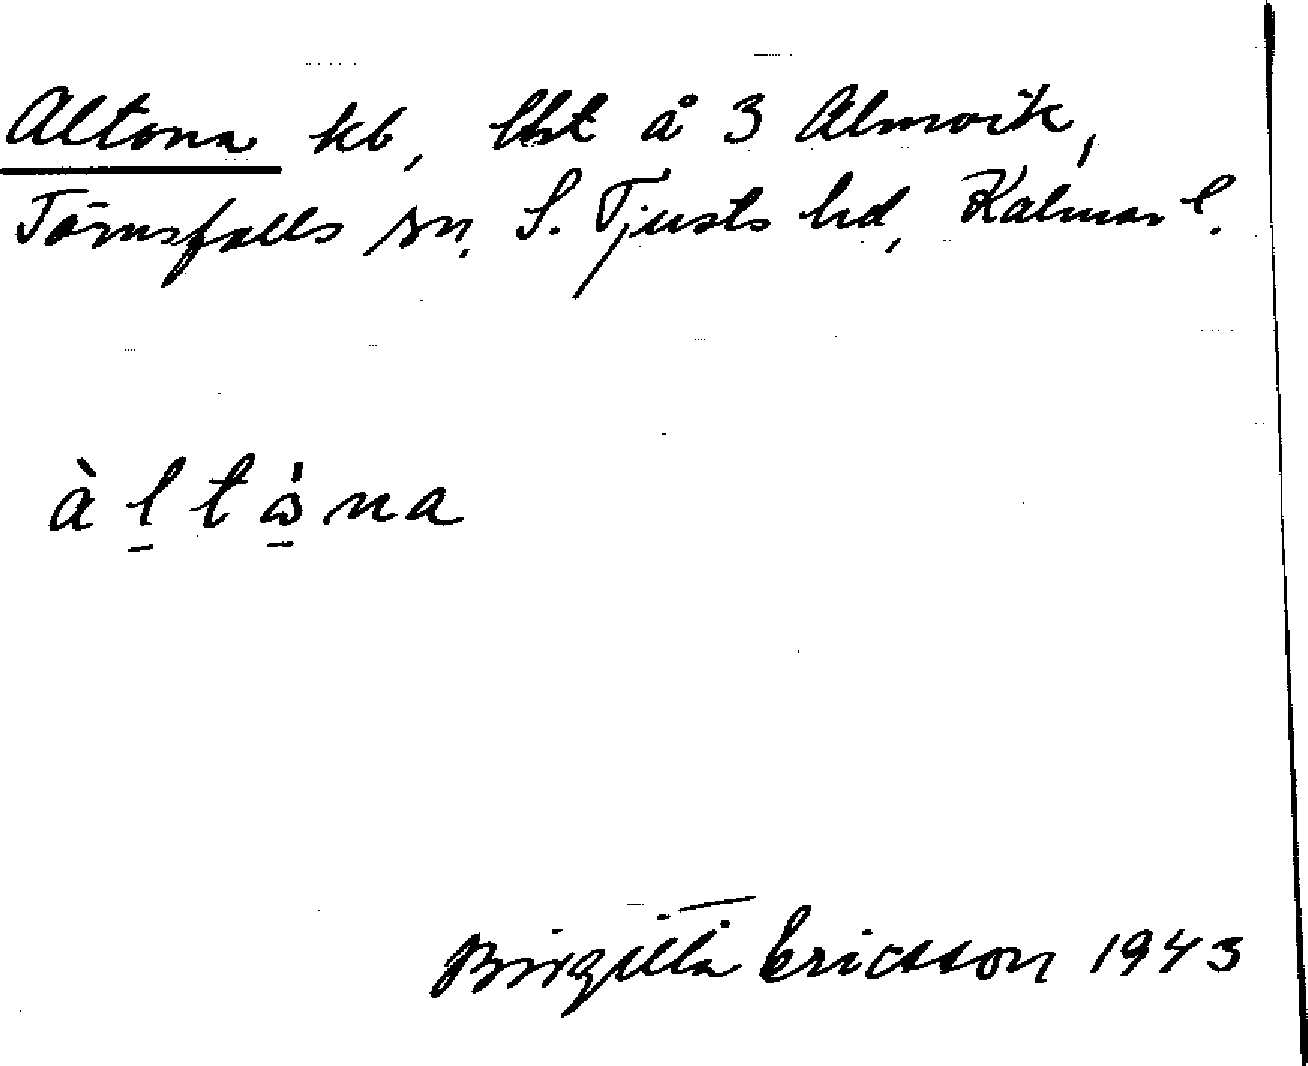 Altona kb, lht å 3 Almvik,
Törnsfalls sn. S. Tjusts hd, Kalmar l.
àltǻna
Birgitta Ericsson 1943